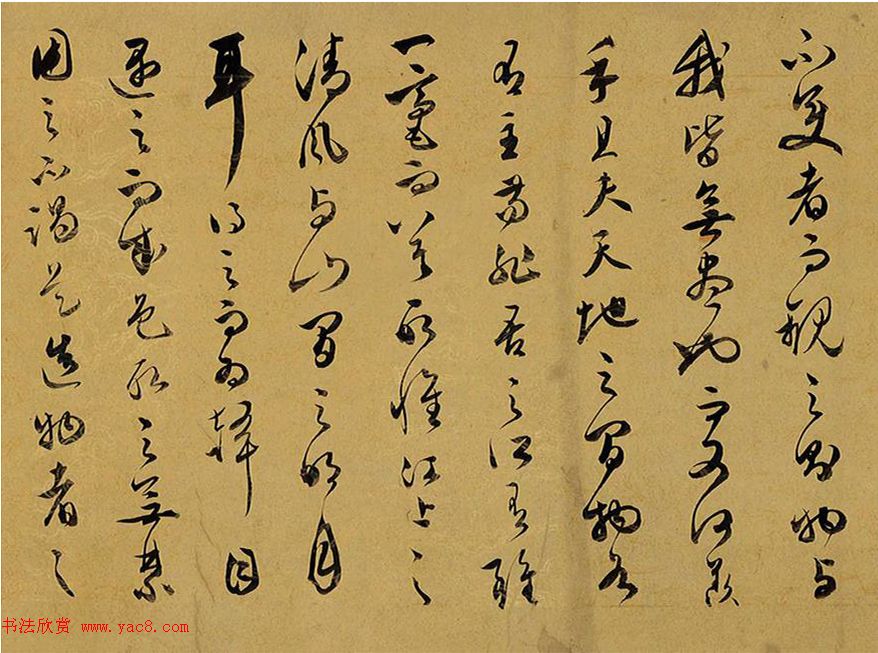 不變者而觀之則物与
我皆無盡也而又何羨
乎且夫天地之間物各
有主苟非吾之所有雖
一毫而莫取惟江上之
清風与山間之明月
耳得之而為聲目
遇之而成色取之無禁
用之不竭是造物者之
书法欣赏 www.yac8.com